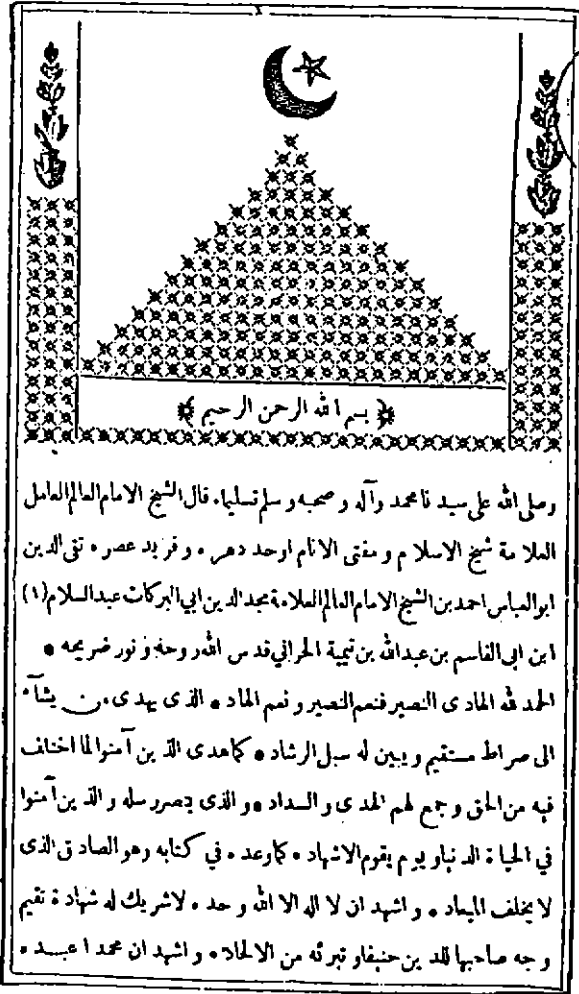 ﴿ بسم الله الرحمن الرحيم ﴾
وصلى الله على سيدنا محمد وآله وصحبه وسلم تسليما. قال الشيخ الامام العالم العامل
العلامة شيخ الاسلام ومفتى الانام اوحد دهره وفريد عصره تقى الدين
ابوالعباس احمد بن الشيخ الامام العالم العلامة مجد الدين ابي البركات عبدالسلام (١)
ابن ابى القاسم بن عبدالله بن تيمية الحراني قدس الله روحه ونور ضريحه •
الحمد لله الهادى النصير فنعم النصير ونعم الهاد • الذى يهدى من يشآء
الى صراط مستقيم ويبين له سبل الرشاد • كما هدى الذين آمنوا لما اختلف
فيه من الحق وجمع لهم الهدى والسداد • والذى ينصر رسله والذين آمنوا
في الحياة الدنيا ويوم يقوم الاشهاد • كما وعده في كتابه وهو الصادق الذى
لا يخلف الميعاد • واشهد ان لا اله الا الله وحده لا شريك له شهادة تقيم
وجه صاحبها للدين حنيفا وتبرئه من الالحاد • واشهد ان محمدا عبده